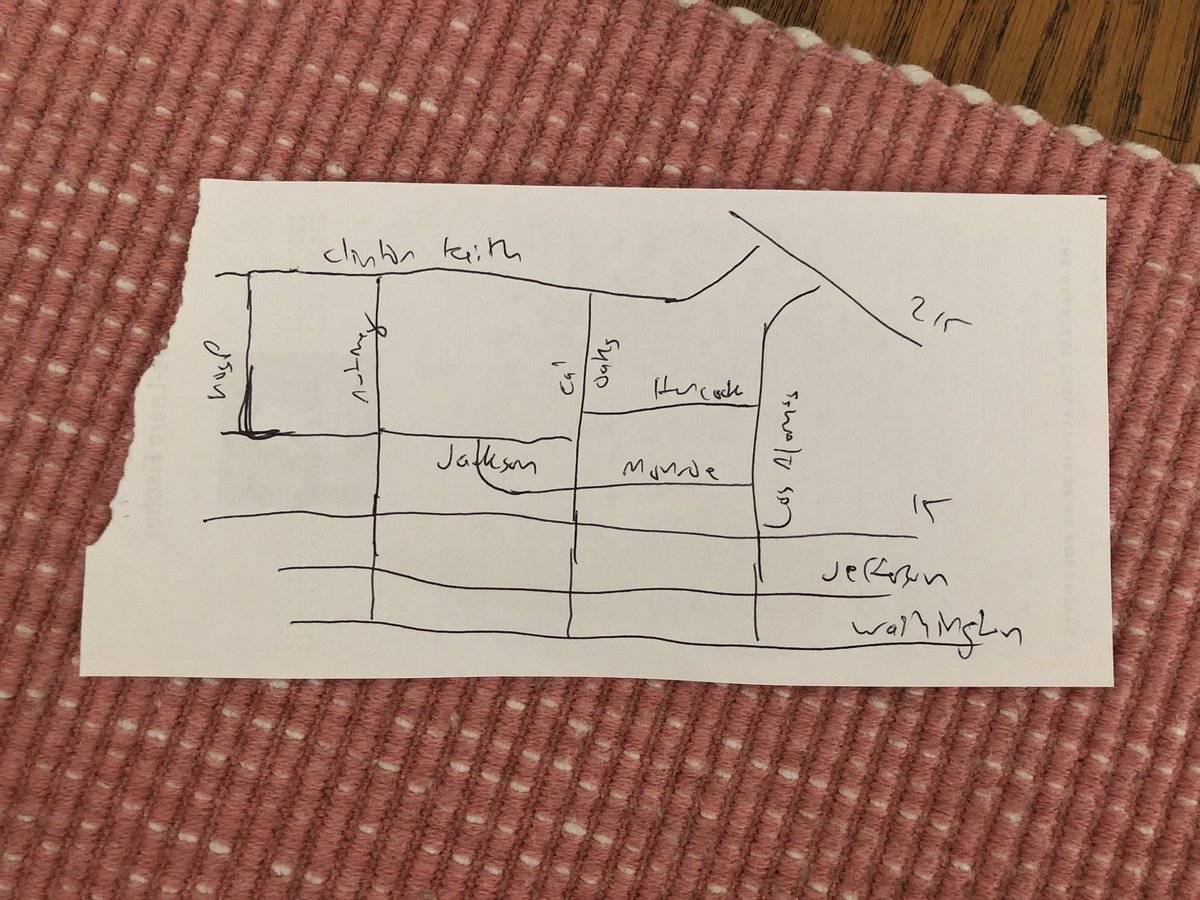 Clinton Keith
215
Nutmeg
Cal
Oaks
Hancock
Jackson
Monroe
Los Alamos
15
Jefferson
Washington